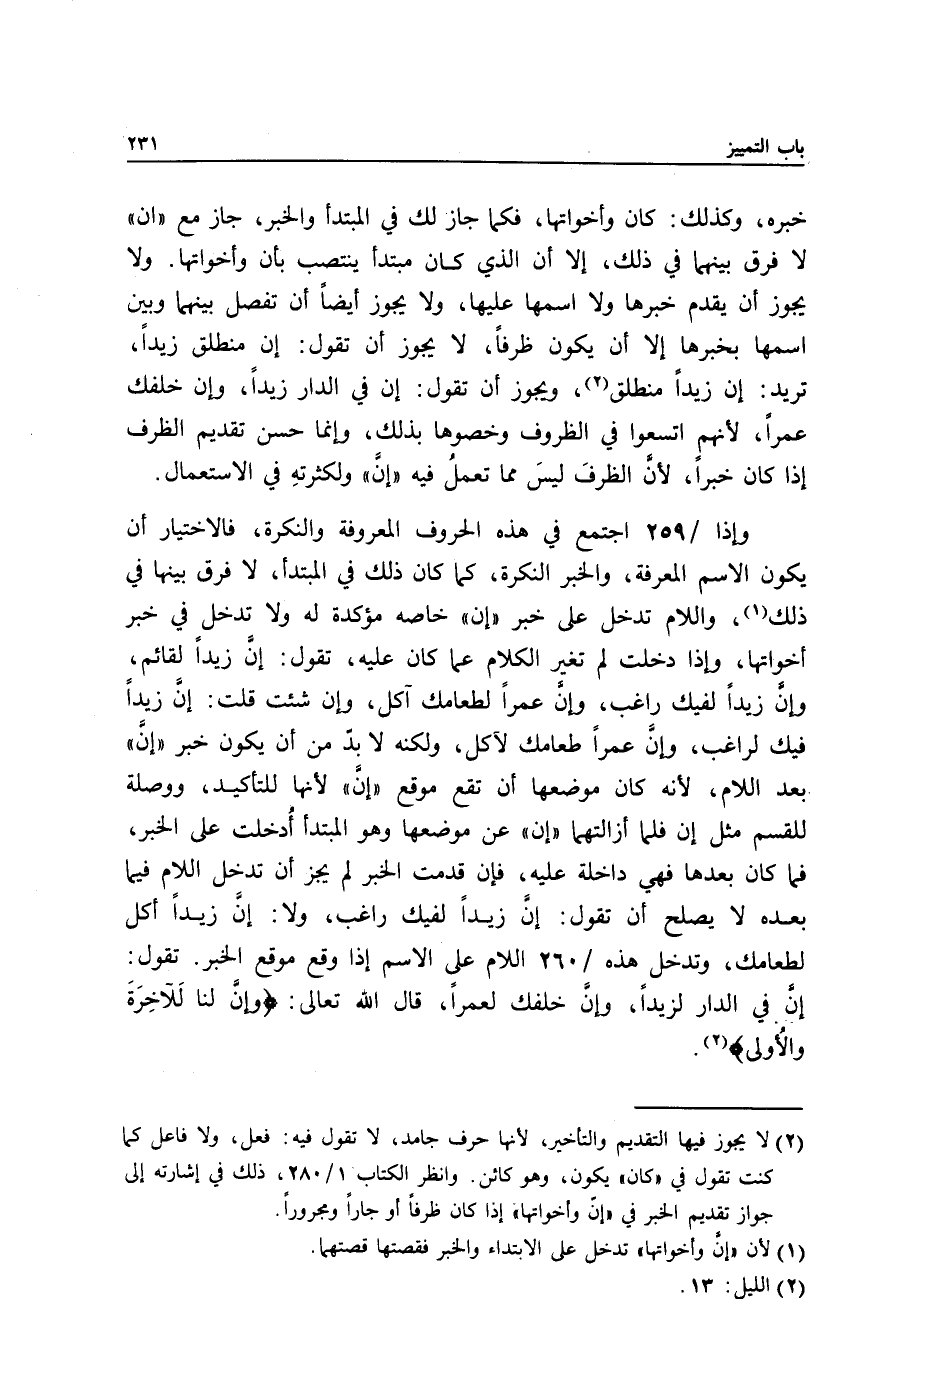 باب التمييز ٢٣١
خبره، وكذلك: كان وأخواتها، فكما جاز لك في المبتدأ والخبر، جاز مع «ان»
لا فرق بينهما في ذلك، إلا أن الذي كان مبتدأ ينتصب بأن وأخواتها. ولا
يجوز أن يقدم خبرها ولا اسمها عليها، ولا يجوز أيضاً أن تفصل بينهما وبين
اسمها بخبرها إلا أن يكون ظرفاً، لا يجوز أن تقول: إن منطلق زيداً،
تريد: إن زيداً منطلق(٢)، ويجوز أن تقول: إن في الدار زيداً، وإن خلفك
عمراً، لأنهم اتسعوا في الظروف وخصوها بذلك، وإنما حسن تقديم الظرف
إذا كان خبراً، لأنَّ الظرفَ ليسَ مما تعملُ فيه «إنَّ» ولكثرتهِ في الاستعمال.
وإذا /٢٥٩ اجتمع في هذه الحروف المعروفة والنكرة، فالاختيار أن
يكون الاسم المعرفة، والخبر النكرة، كما كان ذلك في المبتدأ، لا فرق بينها في
ذلك(١)، واللام تدخل على خبر «إن» خاصه مؤكدة له ولا تدخل في خبر
أخواتها، وإذا دخلت لم تغير الكلام عما كان عليه، تقول: إنَّ زيداً لقائم،
وإنَّ زيداً لفيك راغب، وإنَّ عمراً لطعامك آكل، وإن شئت قلت: إنَّ زيداً
فيك لراغب، وإنَّ عمراً طعامك لآكل، ولكنه لا بدّ من أن يكون خبر «إنَّ»
بعد اللام، لأنه كان موضعها أن تقع موقع «إنَّ» لأنها للتأكيد، ووصلة
للقسم مثل إن فلما أزالتهما «إن» عن موضعها وهو المبتدأ أُدخلت على الخبر،
فما كان بعدها فهي داخلة عليه، فإن قدمت الخبر لم يجز أن تدخل اللام فيما
بعده لا يصلح أن تقول: إنَّ زيداً لفيك راغب، ولا: إنَّ زيداً أكل
لطعامك، وتدخل هذه /٢٦٠ اللام على الاسم إذا وقع موقع الخبر. تقول:
إنَّ في الدار لزيداً، وإنَّ خلفك لعمراً، قال الله تعالى: ﴿وإنَّ لنا لَلآخِرَةَ
والأُولى﴾(٢).
(٢) لا يجوز فيها التقديم والتأخير، لأنها حرف جامد، لا تقول فيه: فعل، ولا فاعل كما
كنت تقول في «كان» يكون، وهو كائن. وانظر الكتاب ١/ ٢٨٠، ذلك في إشارته إلى
جواز تقديم الخبر في «إنّ وأخواتها» إذا كان ظرفاً أو جاراً ومجروراً.
(١) لأن «إنَّ وأخواتها» تدخل على الابتداء والخبر فقصتها قصتهما.
(٢) الليل: ١٣.